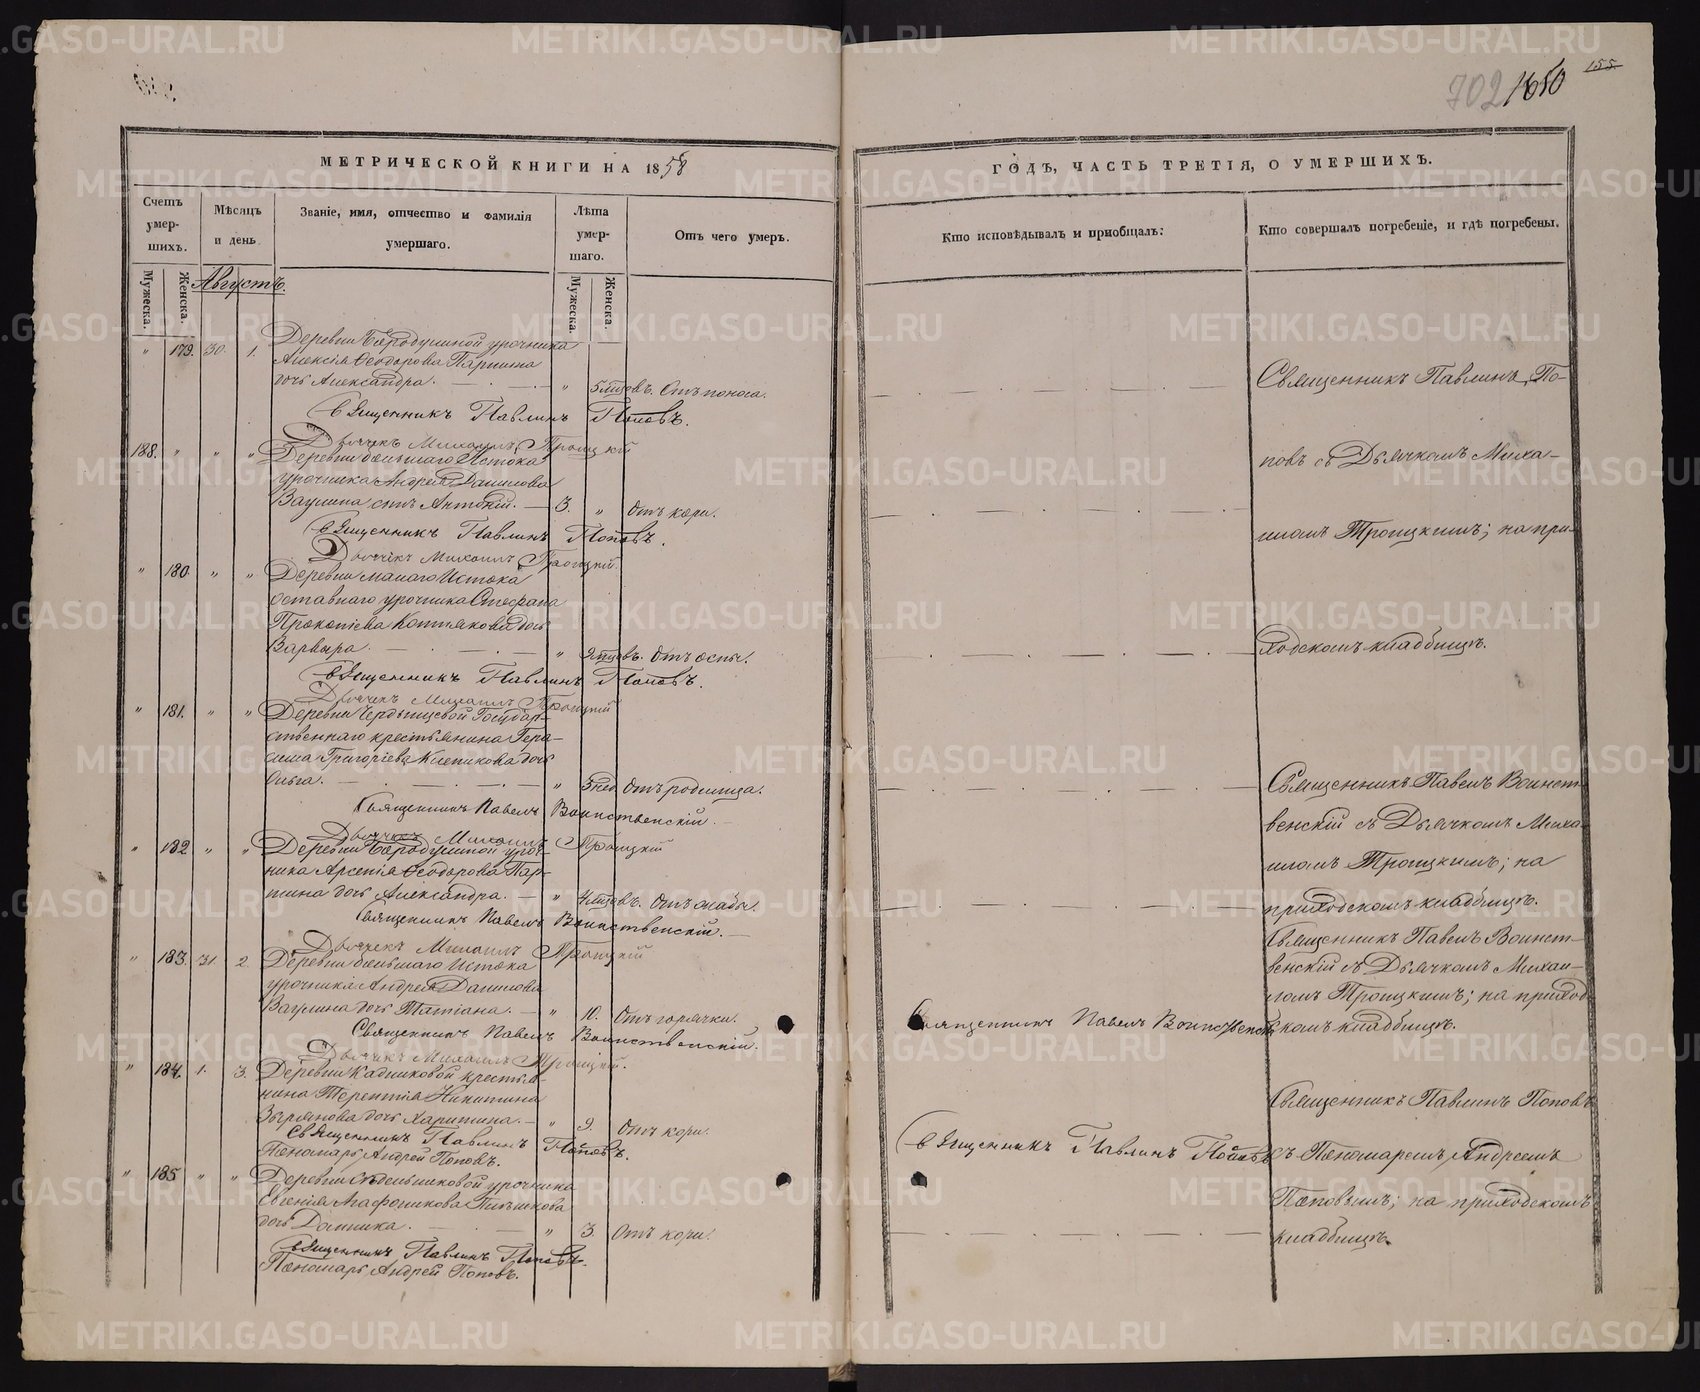 702 1650 155
МЕТРИЧЕСКОЙ КНИГИ НА 1858
ГОДЪ, ЧАСТЬ ТРЕТІЯ, О УМЕРШИХЪ.
Счетъ умер-
шихъ.
Мужеска.
Женска.
Мѣсяцъ
и день.
Званіе, имя, отчество и фамилія
умершаго.
Лѣта
умер-
шаго.
Мужеска.
Женска.
Отъ чего умеръ.
Кто исповѣдывалъ и пріобщалъ:
Кто совершалъ погребеніе, и гдѣ погребены.
Августъ.
" 179. 30. 1. Деревни Бородулиной урочника
Алексія Ѳеодорова Паршина
дочь Александра. — " 5 мѣсяцовъ. Отъ поноса.
Священникъ Павлинъ Поповъ.
Дьячекъ Михаилъ Троицкій
188. " " " Деревни большаго Истока
урочника Андрея Данилова
Ваулина сынъ Антоній. — 3. " Отъ кори.
Священникъ Павлинъ Поповъ.
Дьячекъ Михаилъ Троицкій.
" 180. " " Деревни малаго Истока
оставнаго урочника Стефана
Прокопіева дочь
Варвара. — " Отъ оспы.
Священникъ Павлинъ Поповъ.
Дьячекъ Михаилъ Троицкій
" 181. " " Деревни Государ-
ственнаго крестьянина Гера-
сима Григоріева Клепикова дочь
Ольга. — " 3 нед. Отъ родимца.
Священникъ Павелъ Воинственскій. —
Дьячекъ Михаилъ Троицкій
" 182 " " Деревни Бородулиной уроч-
ника Арсенія Ѳеодорова Пар-
шина дочь Александра. — " 4 мѣсяцовъ. Отъ слабы.
Священникъ Павелъ Воинственскій. —
Дьячекъ Михаилъ Троицкій
" 183. 31. 2. Деревни большаго Истока
урочника Андрея Данилова
Ваулина дочь Татіана. — " 10. Отъ горячки.
Священникъ Павелъ Воинственскій.
Дьячекъ Михаилъ Троицкій.
" 184. 1. 3. Деревни Кадниковой крестья-
нина Терентія Никитина
Зырянова дочь Харитина. — " 9. Отъ кори.
Священникъ Павлинъ Поповъ.
Пономарь Андрей Поповъ.
" 185 " " Деревни урочника
Евгенія Агафоникова
дочь Домника. — " 3. Отъ кори.
Священникъ Павлинъ Поповъ.
Пономарь Андрей Поповъ.
Священникъ Павлинъ По-
повъ съ Дьячкомъ Миха-
иломъ Троицкимъ; на при-
ходскомъ кладбищѣ.
Священникъ Павелъ Воинст-
венскій съ Дьячкомъ Миха-
иломъ Троицкимъ; на
приходскомъ кладбищѣ.
Священникъ Павелъ Воинст-
венскій съ Дьячкомъ Михаи-
ломъ Троицкимъ; на приход-
Священникъ Павелъ Воинственскій
скомъ кладбищѣ.
Священникъ Павлинъ Поповъ
Священникъ Павлинъ Поповъ
съ Пономаремъ Андреемъ
Поповымъ; на приходскомъ
кладбищѣ.
METRIKI.GASO-URAL.RU